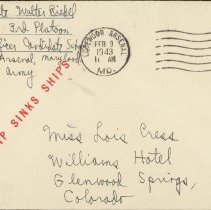 Walter Bickel
3rd Platoon
Officer Candidate School
Arsenal, Maryland
Army
EDGEWOOD ARSENAL
FEB 9
1943
11 AM
MD.
P SINKS SHIPS
Miss Lois Cress
Williams Hotel
Glenwood Springs,
Colorado